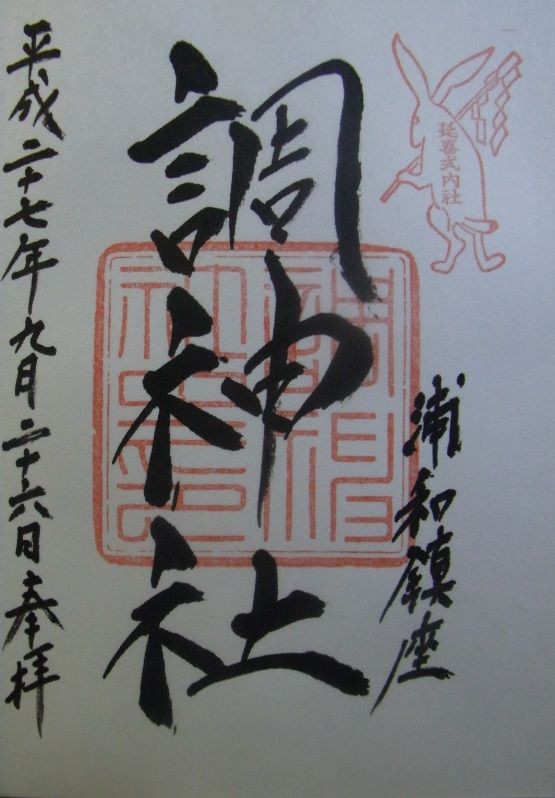 延喜式内社
浦和鎮座
調神社
平成二十七年九月二十六日奉拝